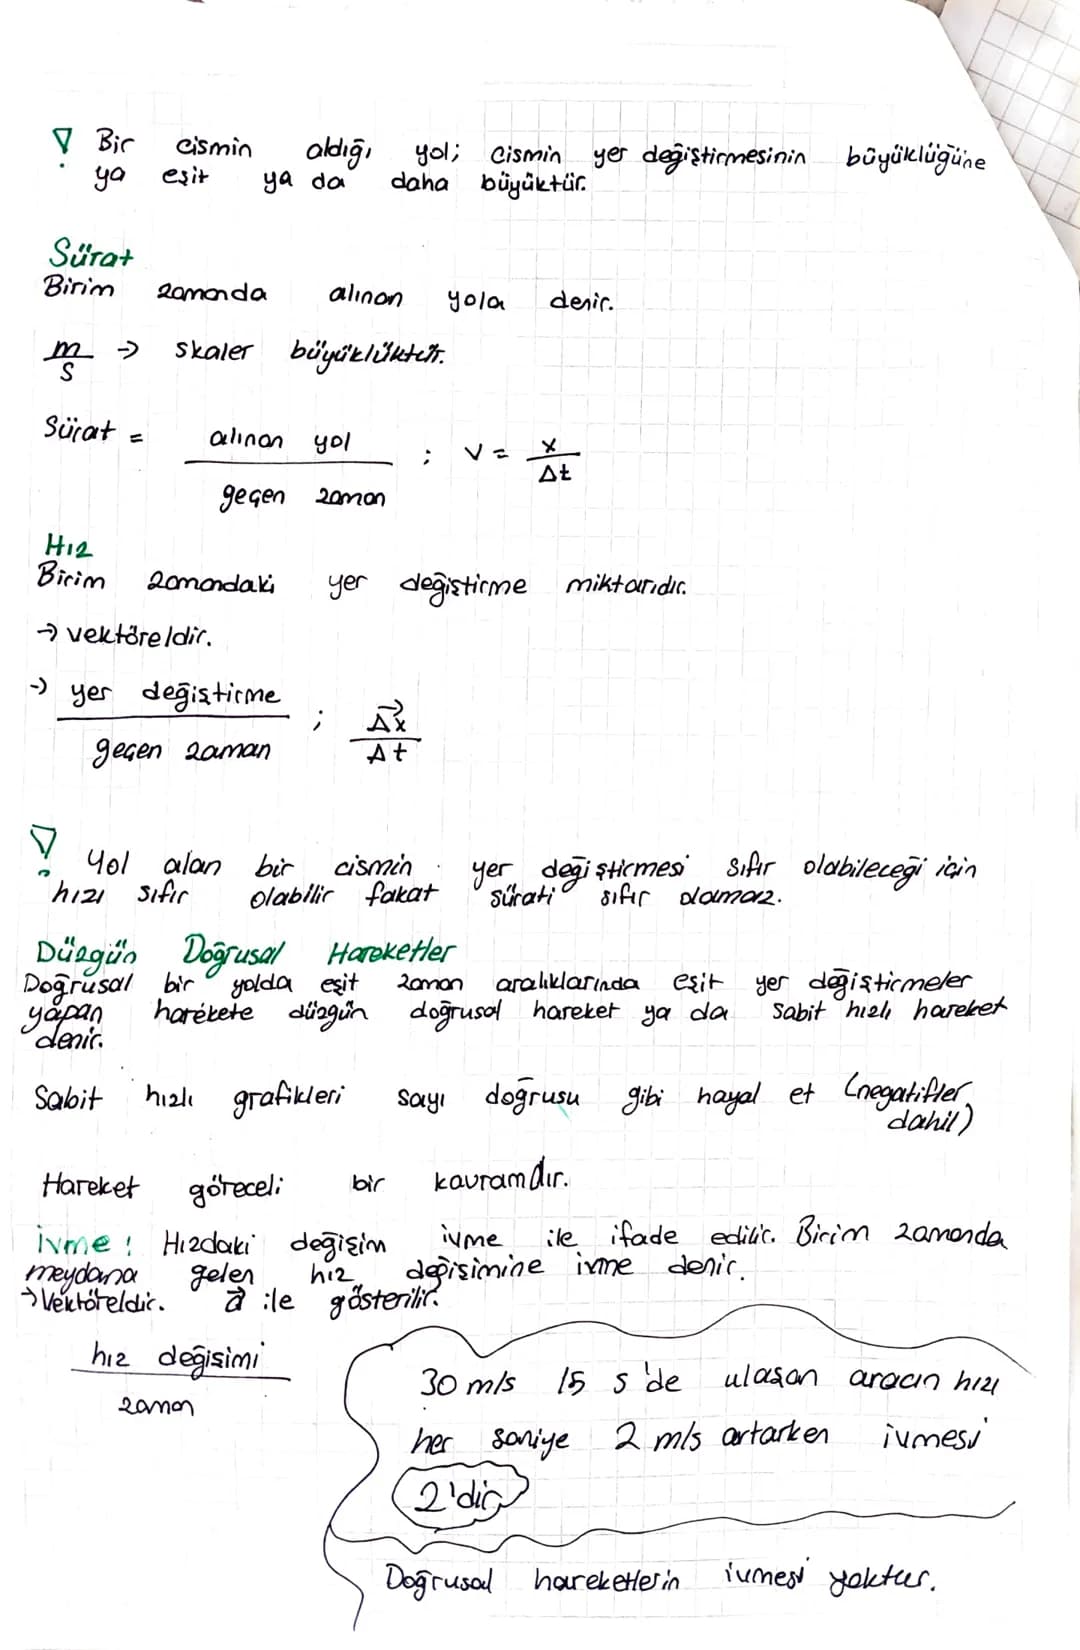 ! Bir cismin aldığı yol; cismin yer değiştirmesinin büyüklüğüne
ya eşit ya da daha büyüktür.
Sürat
Birim zamanda alınan yola denir.
m/s → skaler büyüklüktür.
Sürat = alınan yol / geçen zaman ; v = x / Δt
Hız
Birim zamandaki yer değiştirme miktarıdır.
→ vektöreldir.
→ yer değiştirme / geçen zaman ; Δx⃗ / Δt
! Yol alan bir cismin yer değiştirmesi sıfır olabileceği için
hızı sıfır olabilir fakat sürati sıfır olamaz.
Düzgün Doğrusal Hareketler
Doğrusal bir yolda eşit zaman aralıklarında eşit yer değiştirmeler
yapan harekete düzgün doğrusal hareket ya da sabit hızlı hareket
denir.
Sabit hızlı grafikleri sayı doğrusu gibi hayal et (negatifler
dahil)
Hareket göreceli bir kavramdır.
İvme: Hızdaki değişim ivme ile ifade edilir. Birim zamanda
meydana gelen hız değişimine ivme denir.
→ Vektöreldir. a⃗ ile gösterilir.
hız değişimi / zaman
30 m/s 15 s'de ulaşan aracın hızı
her saniye 2 m/s artarken ivmesi
2'dir
Doğrusal hareketlerin ivmesi yoktur.